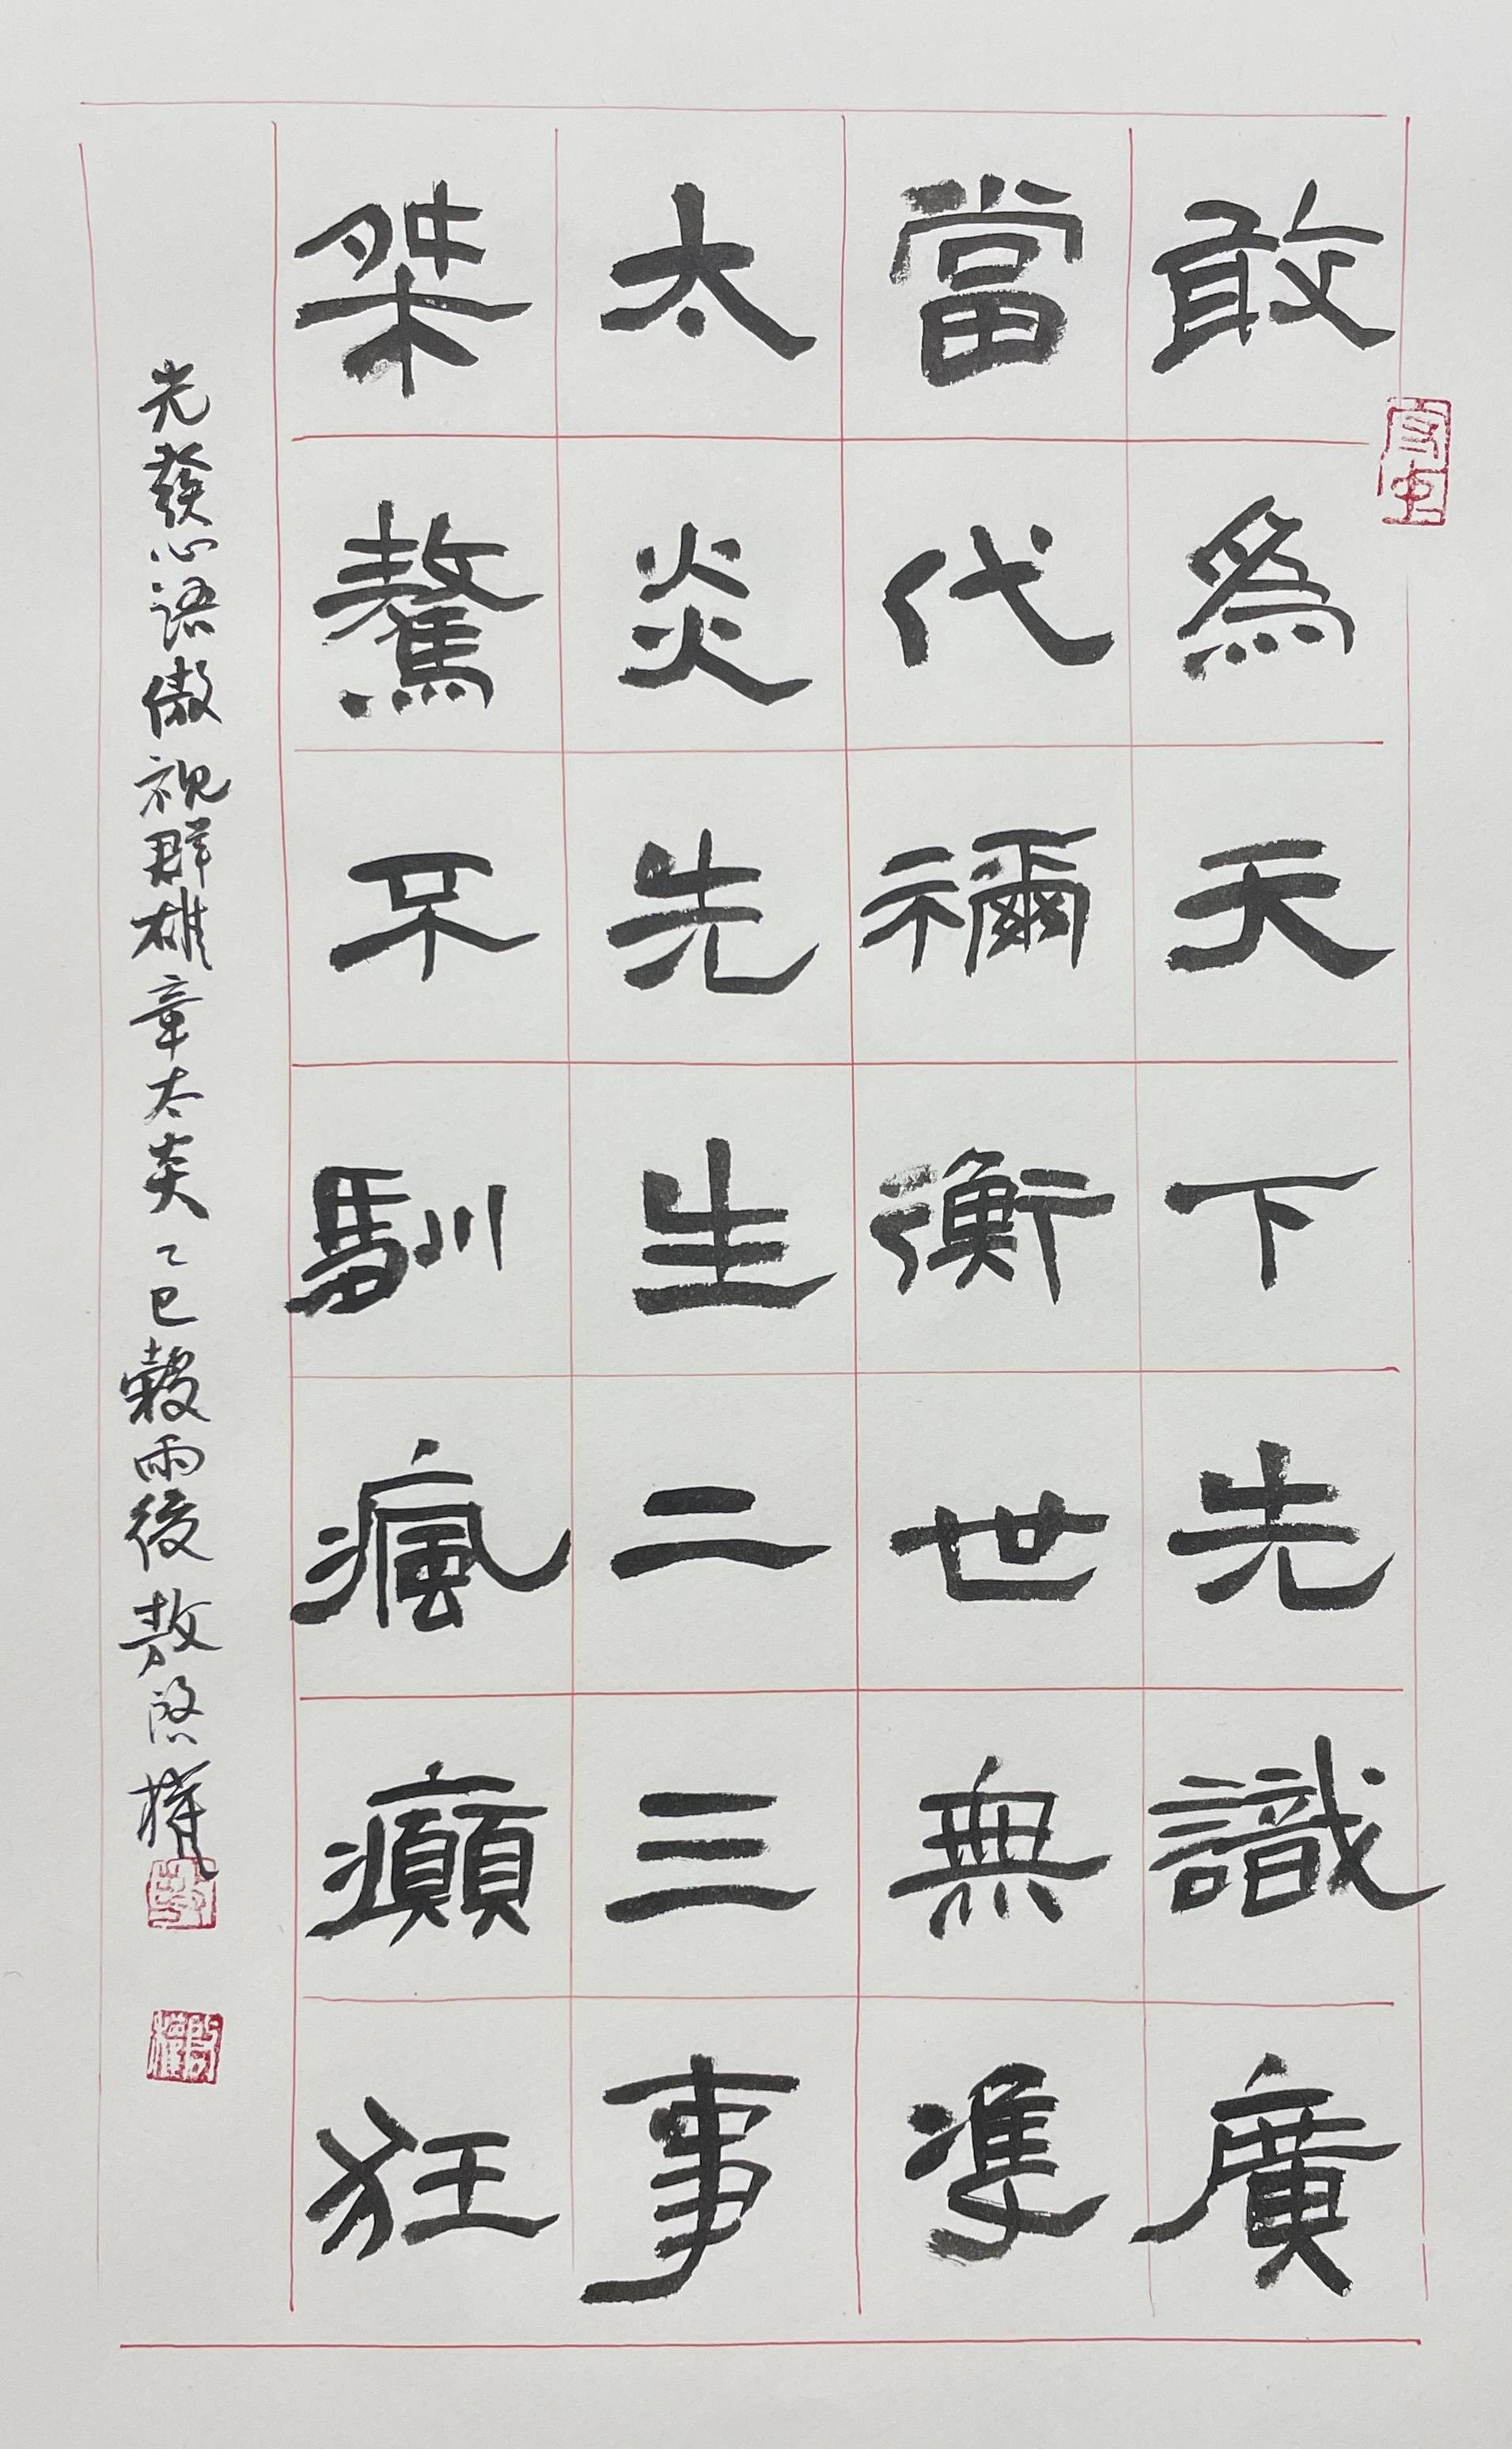 敢為天下先識廣
當代禰衡世無準
太炎先生二三事
桀驁不馴瘋癲狂
光發心語傲視群雄章太炎乙巳穀雨後敖啟權
啟權